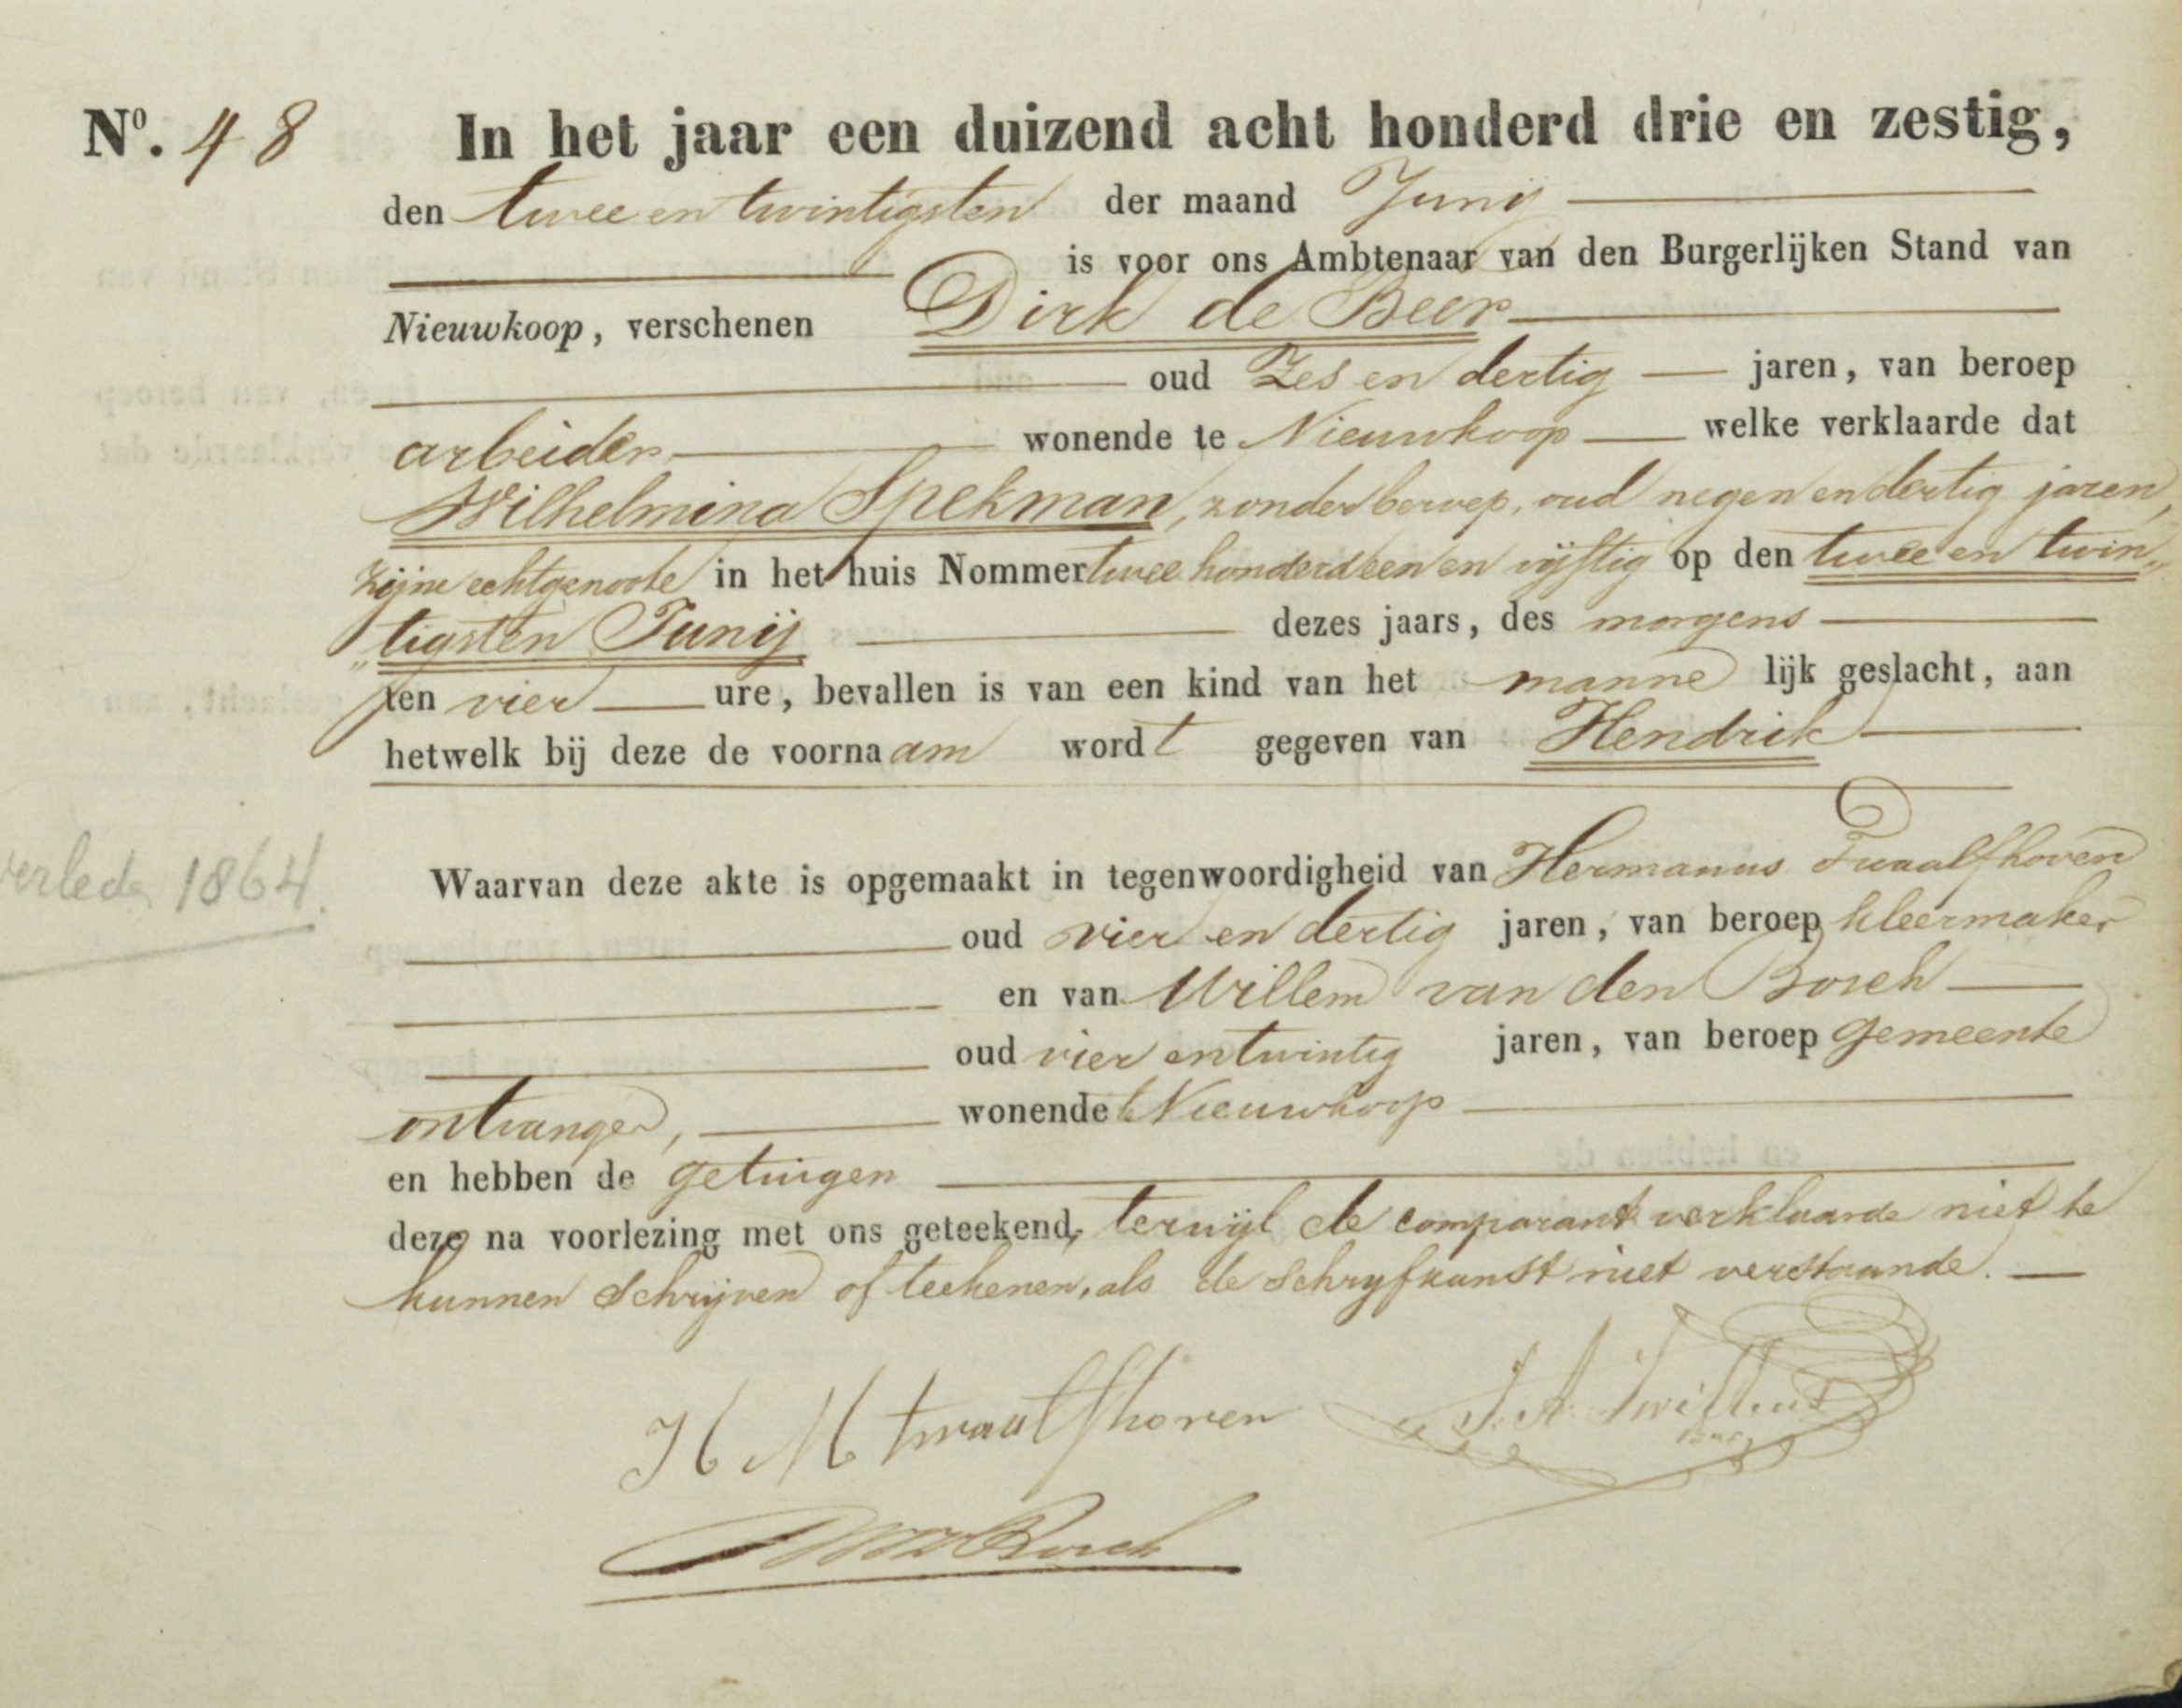 No. 48 In het jaar een duizend acht honderd drie en zestig,
den twee en twintigsten der maand Junij
is voor ons Ambtenaar van den Burgerlijken Stand van
Nieuwkoop, verschenen Dirk de Beer
oud zes en dertig jaren, van beroep
arbeider wonende te Nieuwkoop welke verklaarde dat
Wilhelmina Spekman, zonder beroep, oud negen en dertig jaren,
zijne echtgenoote in het huis Nommer twee honderd een en vijftig op den twee en twin„
„tigsten Junij dezes jaars, des morgens
ten vier ure, bevallen is van een kind van het manne lijk geslacht, aan
hetwelk bij deze de voornaam wordt gegeven van Hendrik
verleden 1864.
Waarvan deze akte is opgemaakt in tegenwoordigheid van Hermanus Twaalfhoven
oud vier en dertig jaren, van beroep kleermaker
en van Willem van den Bosch
oud vier en twintig jaren, van beroep gemeente
ontvanger, wonende te Nieuwkoop
en hebben de getuigen
deze na voorlezing met ons geteekend, terwijl de comparant verklaarde niet te
kunnen schrijven of teekenen, als de schryfkunst niet verstaande.
H M twaalfhoven
Bosch